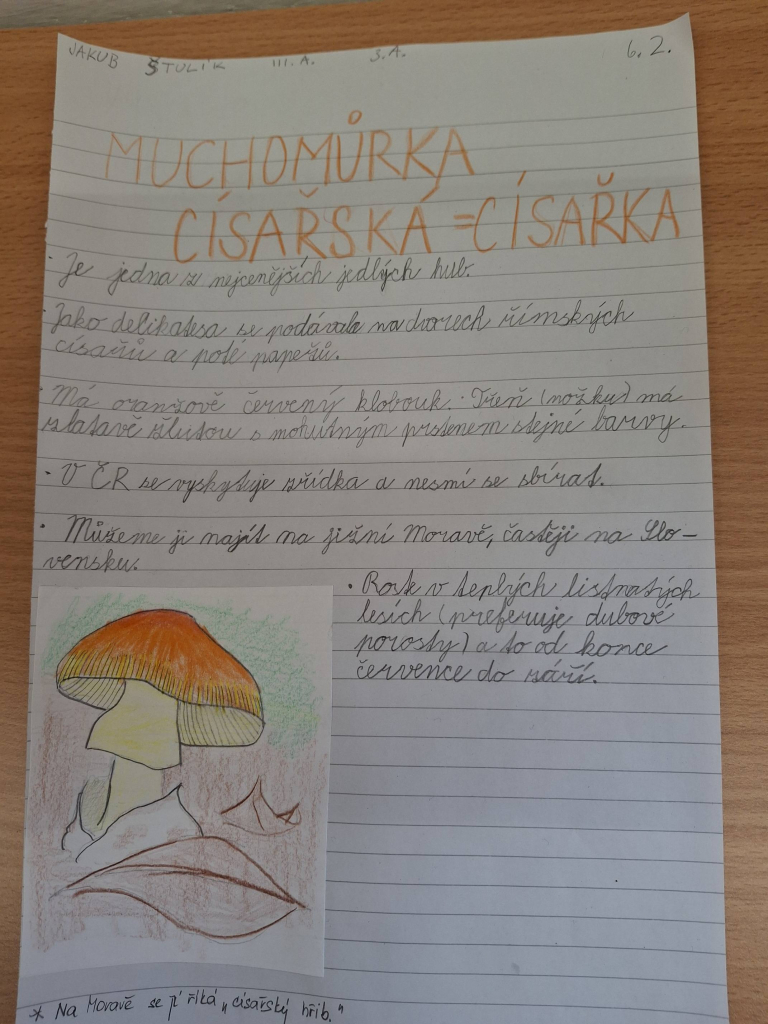 JAKUB ŠTULÍK III. A. 3. A. 6. 2.
MUCHOMŮRKA
CÍSAŘSKÁ = CÍSAŘKA
· Je jedna z nejcenějších jedlých hub.
· Jako delikatesa se podávala na dvorech římských
císařů a poté papežů.
· Má oranžově červený klobouk. · Třeň (nožku) má
zlatavě žlutou s mohutným prstenem stejné barvy.
· V ČR se vyskytuje zřídka a nesmí se sbírat.
· Můžeme ji najít na jižní Moravě, častěji na Slo-
vensku.
· Roste v teplých listnatých
lesích (preferuje dubové
porosty) a to od konce
července do září.
* Na Moravě se jí říká „císařský hřib."